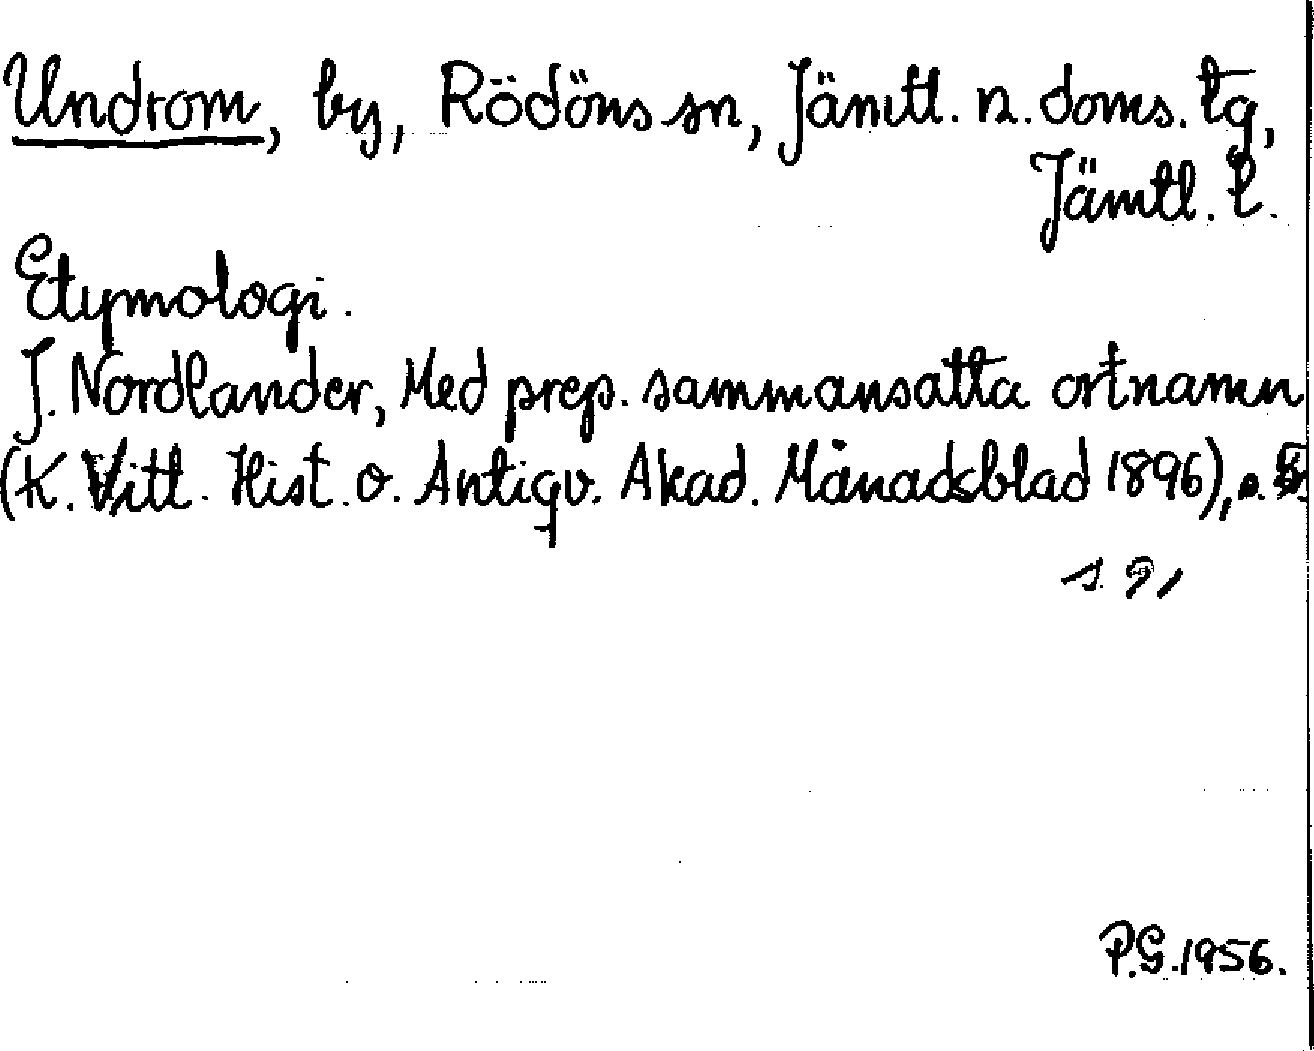 Undrom, by, Rödöns sn, Jämtl. n. doms. tg,
Jämtl. l.
Etymologi.
J. Nordlander, Med prep. sammansatta ortnamn
(K. Vitt. Hist. o. Antiqv. Akad. Månadsblad 1896), s.
s. 9,
P.G. 1956.